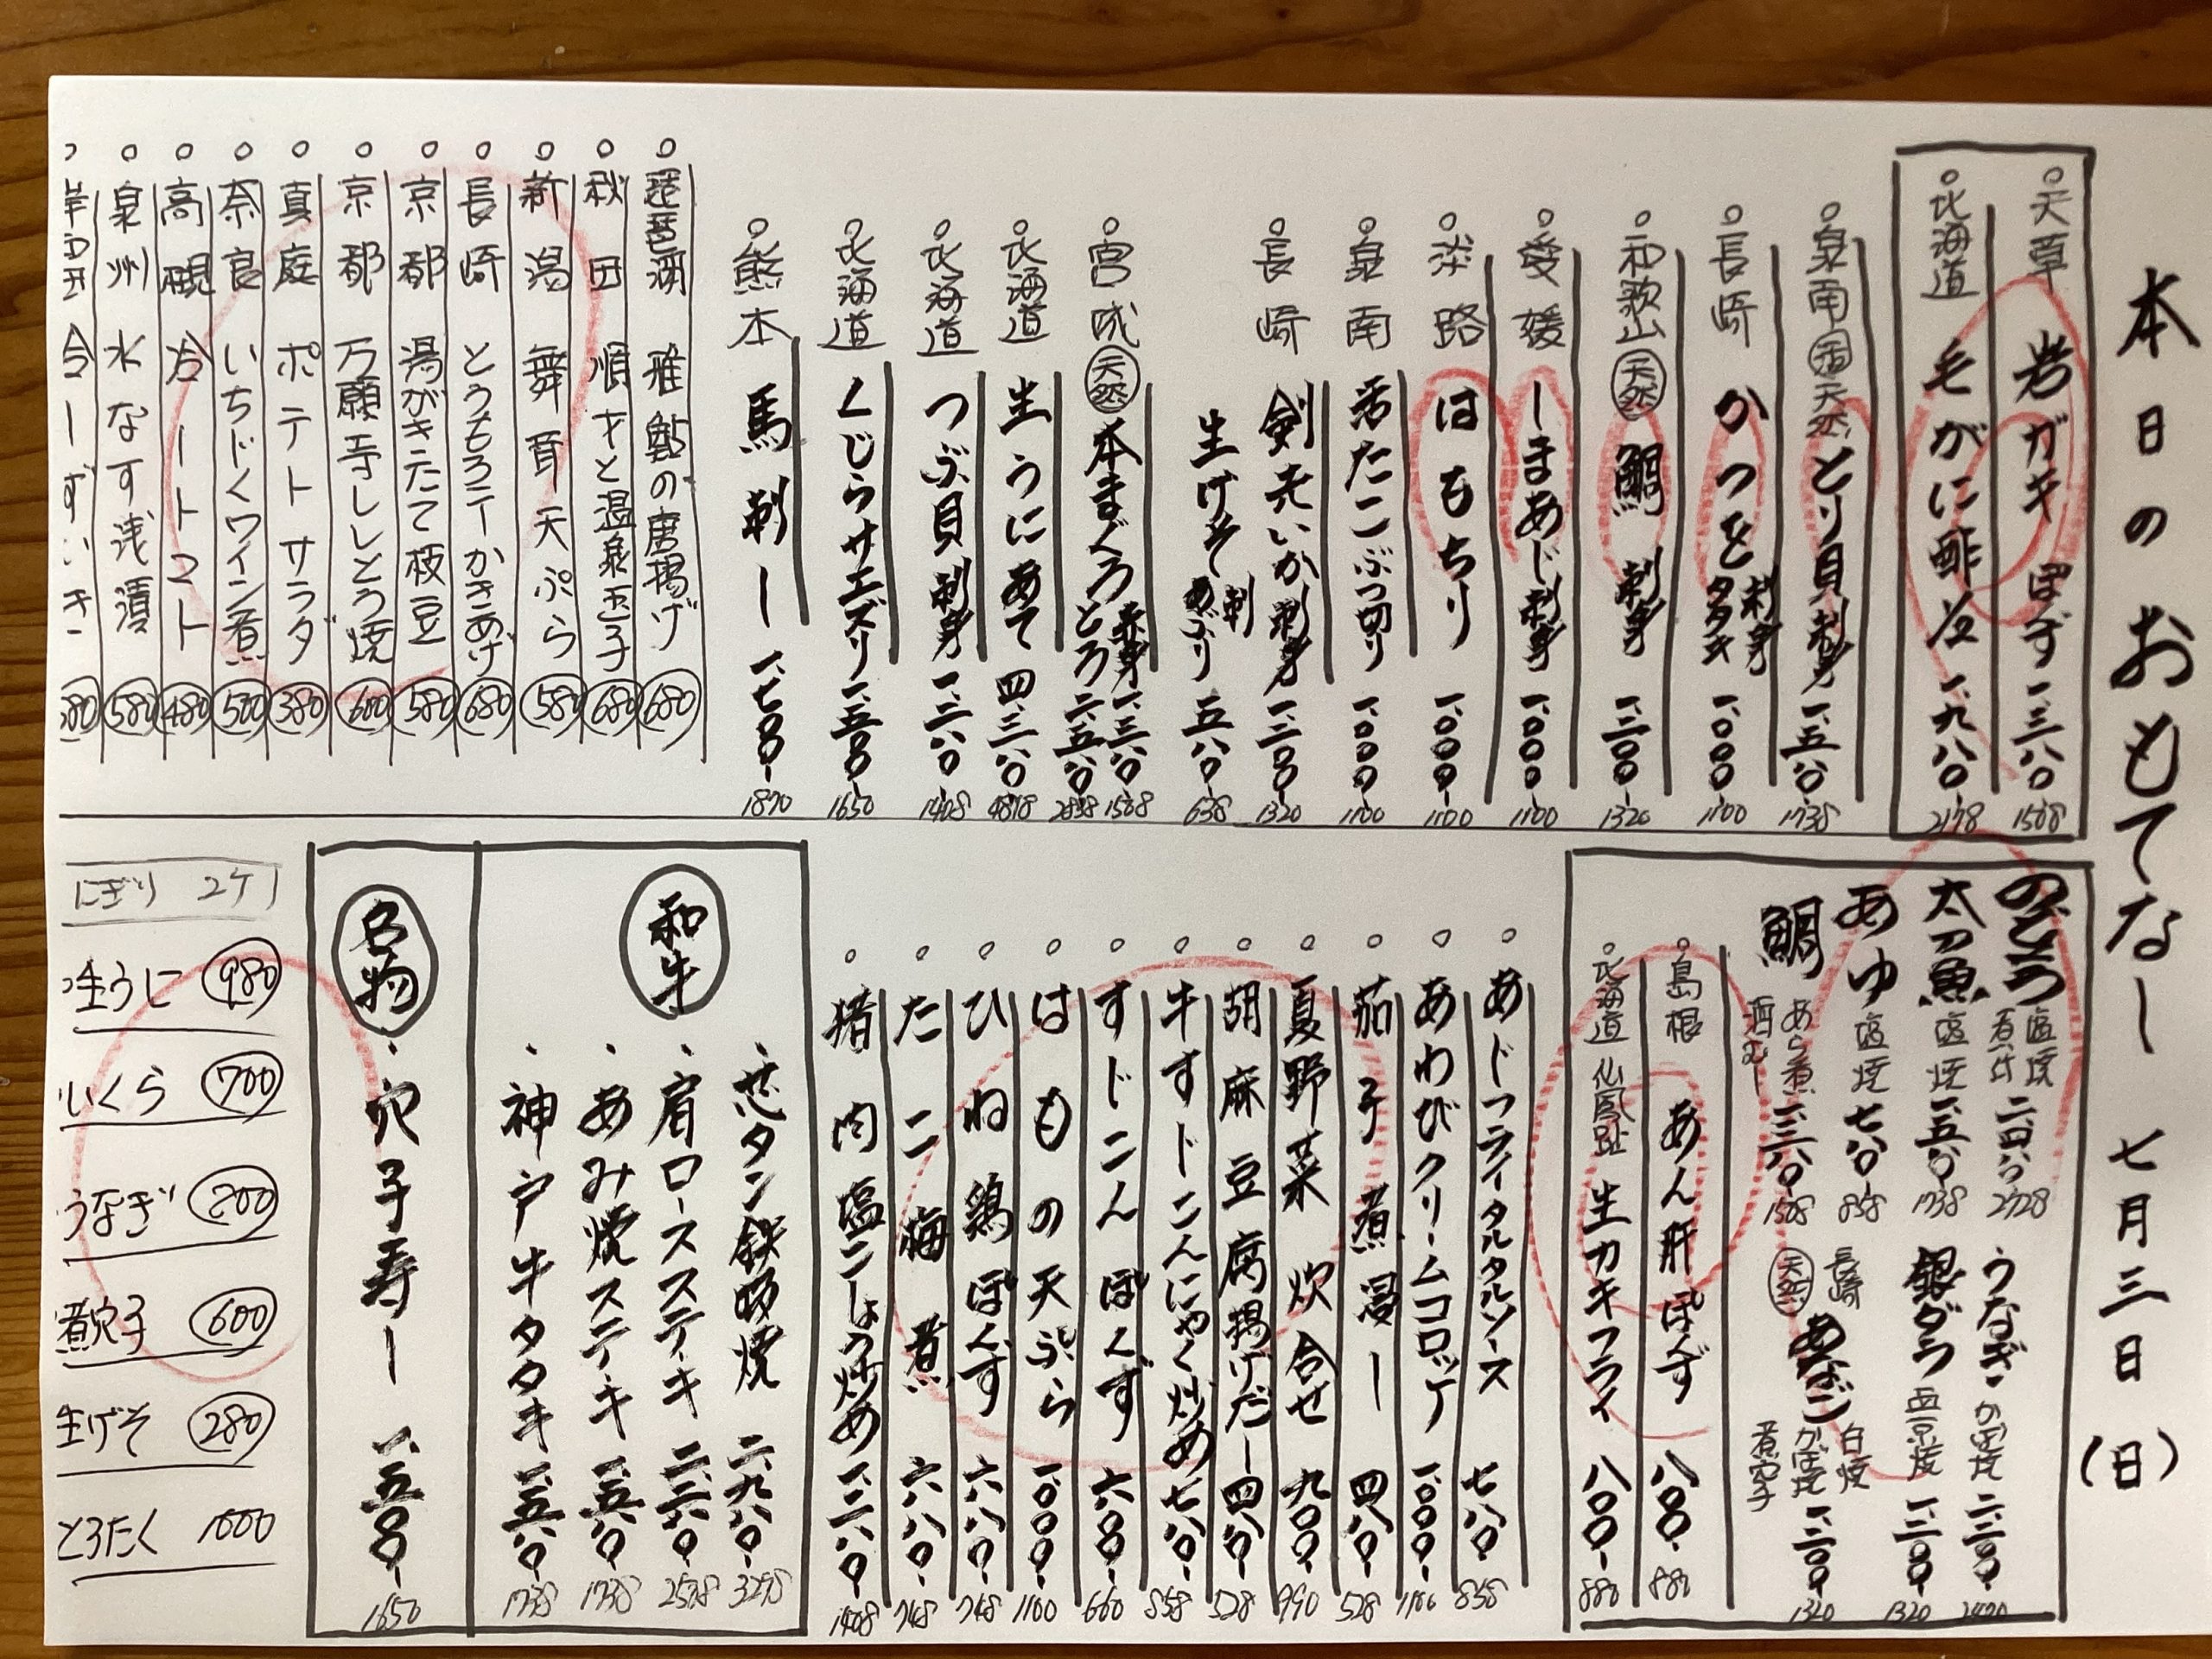 本日のおもてなしー 七月三日(日)
天草 岩ガキ ぽんず 一、三八〇 1508
北海道 毛がに酢 一、九八〇 2178
泉南 活 天然 とり貝 刺身 一、五八〇 1738
長崎 かつを 刺身 タタキ 一、〇〇〇 1100
和歌山 天然 鯛 刺身 一、二〇〇 1320
愛媛 しまあじ 刺身 一、〇〇〇 1100
淡路 はもちり 一、〇〇〇 1100
泉南 活たこぶつ切り 一、〇〇〇 1100
長崎 剣先いか 刺身 一、二〇〇 1320
生げそ 刺 あぶり 五八〇 638
宮城 天然 本まぐろ 赤身 一、三八〇 1508
とろ 二、五八〇 2838
北海道 生うにあて 四、三八〇 4818
北海道 つぶ貝 刺身 一、二八〇 1408
北海道 くじらサエズリ 一、五〇〇 1650
熊本 馬刺し 一、七〇〇 1870
琵琶湖 稚鮎の唐揚げ 680
秋田 順才と温泉玉子 680
新潟 舞茸天ぷら 580
長崎 とうもろこしかきあげ 680
京都 湯がきたて枝豆 580
京都 万願寺ししとう焼 600
真庭 ポテトサラダ 380
奈良 いちじくワイン煮 500
高槻 冷トマト 480
泉州 水なす浅漬 580
のどぐろ 塩焼 煮付 2728
太刀魚 塩焼 一、五八〇 1738
あゆ 塩焼 七八〇 858
鯛 あら煮 酒むし 一、三八〇 1508
うなぎ かば焼 二、二〇〇 2420
銀ダラ 西京焼 一、二〇〇 1320
長崎 天然 あなご 白焼 かば焼 煮穴子 一、二〇〇 1320
島根 あん肝ぽんず 八〇〇 880
北海道 仙鳳趾 生カキフライ 八〇〇 880
あじフライタルタルソース 七八〇 858
あわびクリームコロッケ 一、〇〇〇 1100
茄子煮浸し 四八〇 528
夏野菜炊合せ 九〇〇 990
胡麻豆腐揚げだし 四八〇 528
牛すじこんにゃく炒め 七八〇 858
すじこんぽんず 六〇〇 660
はもの天ぷら 一、〇〇〇 1100
ひね鶏ぽんず 六八〇 748
たこ梅煮 六八〇 748
猪肉塩こしょう炒め 一、二八〇 1408
和牛
芯タン鉄板焼 二、九八〇 3278
肩ロースステーキ 二、三八〇
あみ焼ステーキ 一、五八〇 1738
神戸牛タタキ 一、五八〇 1738
名物
穴子寿し 一、五〇〇 1650
にぎり 2ケ
生うに 980
いくら 700
うなぎ
煮穴子 600
生げそ 280
とろたく 1000